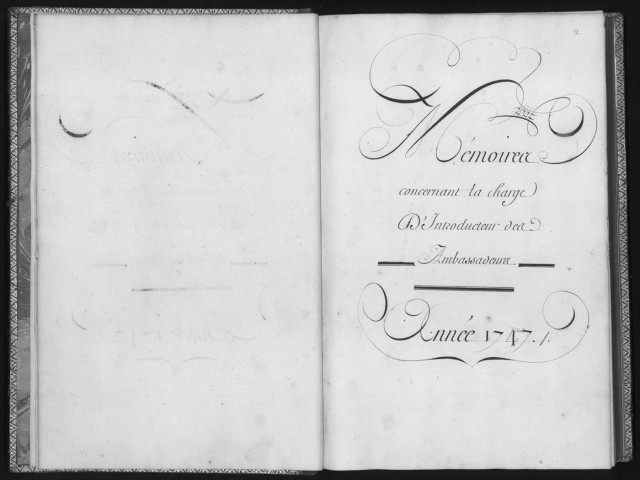 2
Mémoires
concernant la charge
D'Introducteur des
Ambassadeurs
Année 1747.